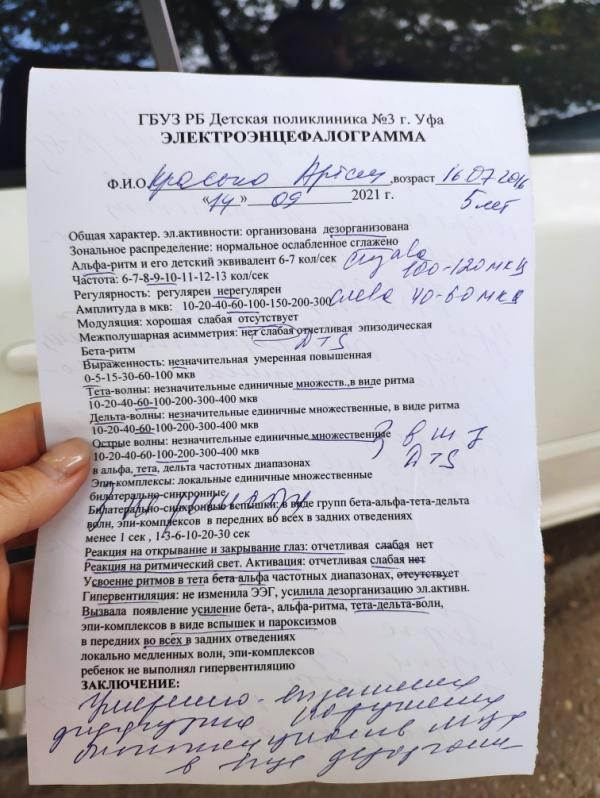 ГБУЗ РБ Детская поликлиника №3 г. Уфа
ЭЛЕКТРОЭНЦЕФАЛОГРАММА
Ф.И.О. Красько Артём, возраст 16.07.2016
«14» 09 2021 г. 5 лет
Общая характер. эл.активности: организована дезорганизована
Зональное распределение: нормальное ослабленное сглажено
Альфа-ритм и его детский эквивалент 6-7 кол/сек справа
Частота: 6-7-8-9-10-11-12-13 кол/сек 100-120 мкц
Регулярность: регулярен нерегулярен
Амплитуда в мкв: 10-20-40-60-100-150-200-300 слева 40-60 мкц
Модуляция: хорошая слабая отсутствует
Межполушарная асимметрия: нет слабая отчетливая эпизодическая
Бета-ритм DTS
Выраженность: незначительная умеренная повышенная
0-5-15-30-60-100 мкв
Тета-волны: незначительные единичные множеств.,в виде ритма
10-20-40-60-100-200-300-400 мкв
Дельта-волны: незначительные единичные множественные, в виде ритма
10-20-40-60-100-200-300-400 мкв
Острые волны: незначительные единичные множественные
10-20-40-60-100-200-300-400 мкв DTS
в альфа, тета, дельта частотных диапазонах
Эпи-комплексы: локальные единичные множественные
билатерально-синхронные
Билатерально-синхронные вспышки: в виде групп бета-альфа-тета-дельта
волн, эпи-комплексов в передних во всех в задних отведениях
менее 1 сек , 1-3-6-10-20-30 сек
Реакция на открывание и закрывание глаз: отчетливая слабая нет
Реакция на ритмический свет. Активация: отчетливая слабая нет
Усвоение ритмов в тета бета альфа частотных диапазонах, отсутствует
Гипервентиляция: не изменила ЭЭГ, усилила дезорганизацию эл.активн.
Вызвала появление усиление бета-, альфа-ритма, тета-дельта-волн,
эпи-комплексов в виде вспышек и пароксизмов
в передних во всех в задних отведениях
локально медленных волн, эпи-комплексов
ребенок не выполнял гипервентиляцию
ЗАКЛЮЧЕНИЕ:
Умеренно-выраженные
диффузные нарушения
биопотенциалов мозга
в виде дезоргани-